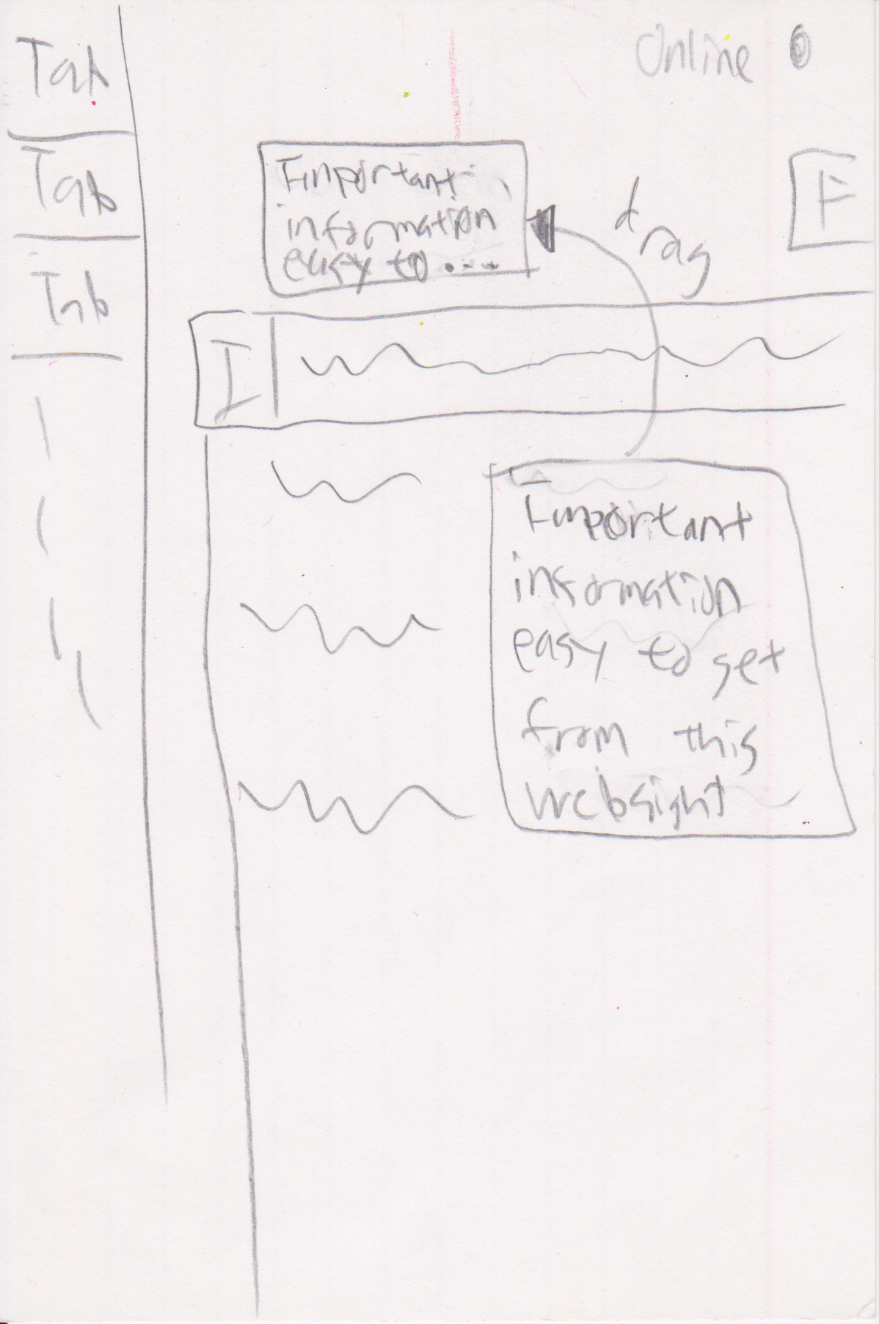 Tab
Online
Tab
Important
information
easy to ...
drag
F
Tab
I
Important
information
easy to get
from this
websight